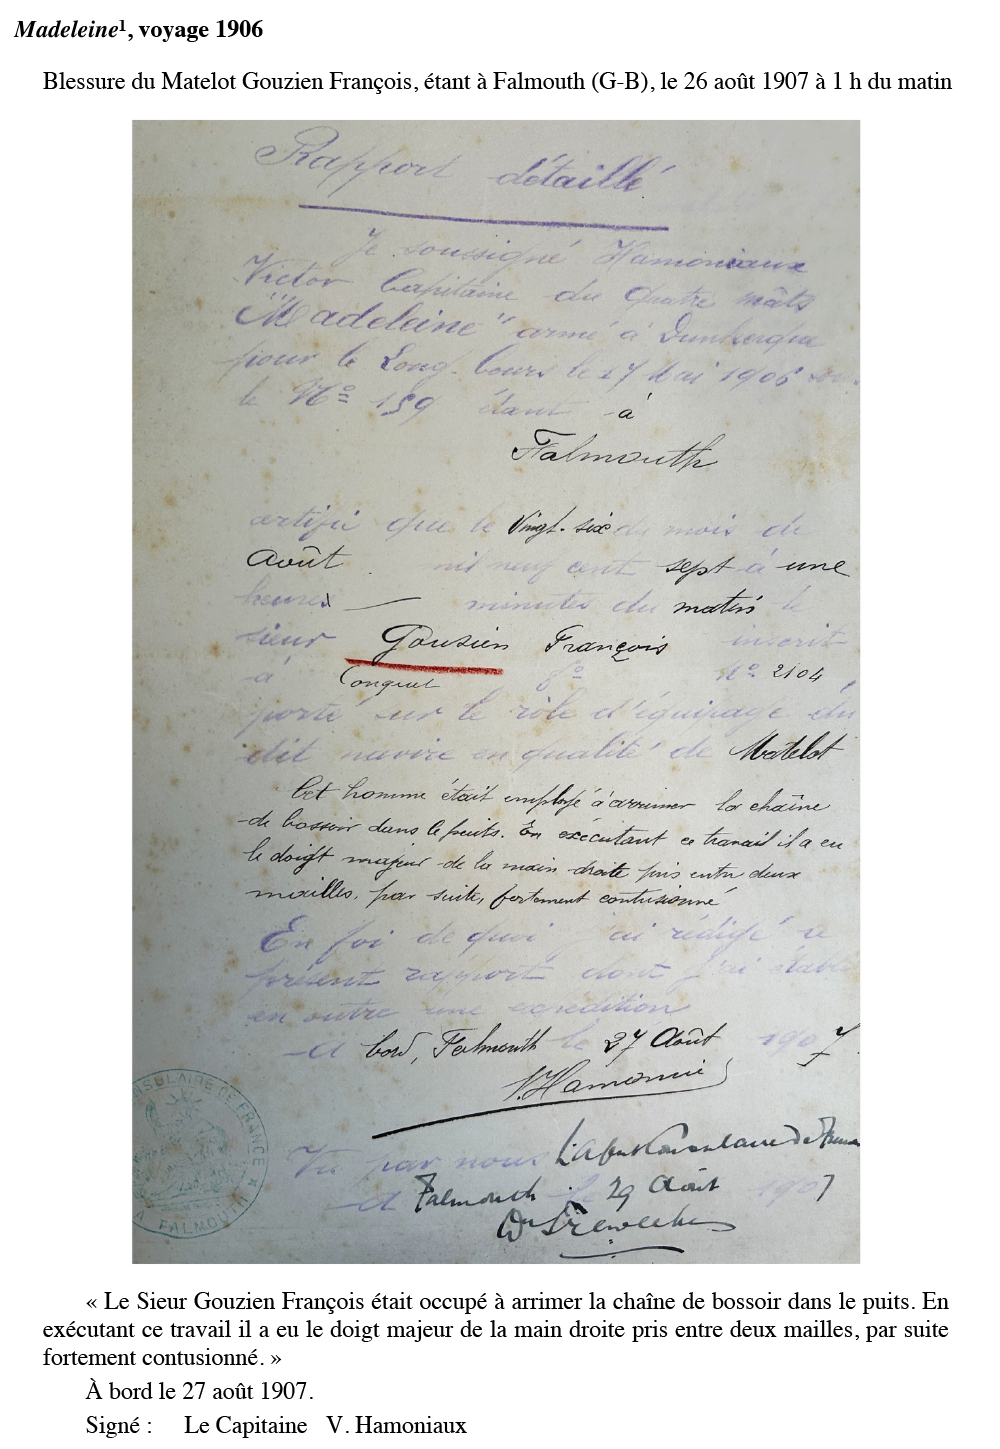 Madeleine¹, voyage 1906
Blessure du Matelot Gouzien François, étant à Falmouth (G-B), le 26 août 1907 à 1 h du matin
Rapport détaillé
Je soussigné Hamoniaux
Victor Capitaine du Quatre mâts
"Madeleine" armé à Dunkerque
pour le Long-Cours le 27 Mai 1906 sous
le No 159 étant à
Falmouth
certifie que le Vingt-six du mois de
Août mil neuf cent sept à une
heures — minutes du matin le
sieur Gouzien François inscrit
à Conquet fo No 2104
porté sur le rôle d'équipage du
dit navire en qualité de Matelot
Cet homme était employé à arrimer la chaîne
de bossoir dans le puits. En exécutant ce travail il a eu
le doigt majeur de la main droite pris entre deux
mailles, par suite, fortement contusionné
En foi de quoi j'ai rédigé ce
présent rapport dont j'ai établi
en outre une expédition
A bord, Falmouth le 27 Août 1907
V. Hamoniaux
Vu par nous L'Agent Consulaire de France
A Falmouth le 29 Août 1907
CONSULAIRE DE FRANCE
A FALMOUTH
« Le Sieur Gouzien François était occupé à arrimer la chaîne de bossoir dans le puits. En
exécutant ce travail il a eu le doigt majeur de la main droite pris entre deux mailles, par suite
fortement contusionné. »
À bord le 27 août 1907.
Signé : Le Capitaine V. Hamoniaux